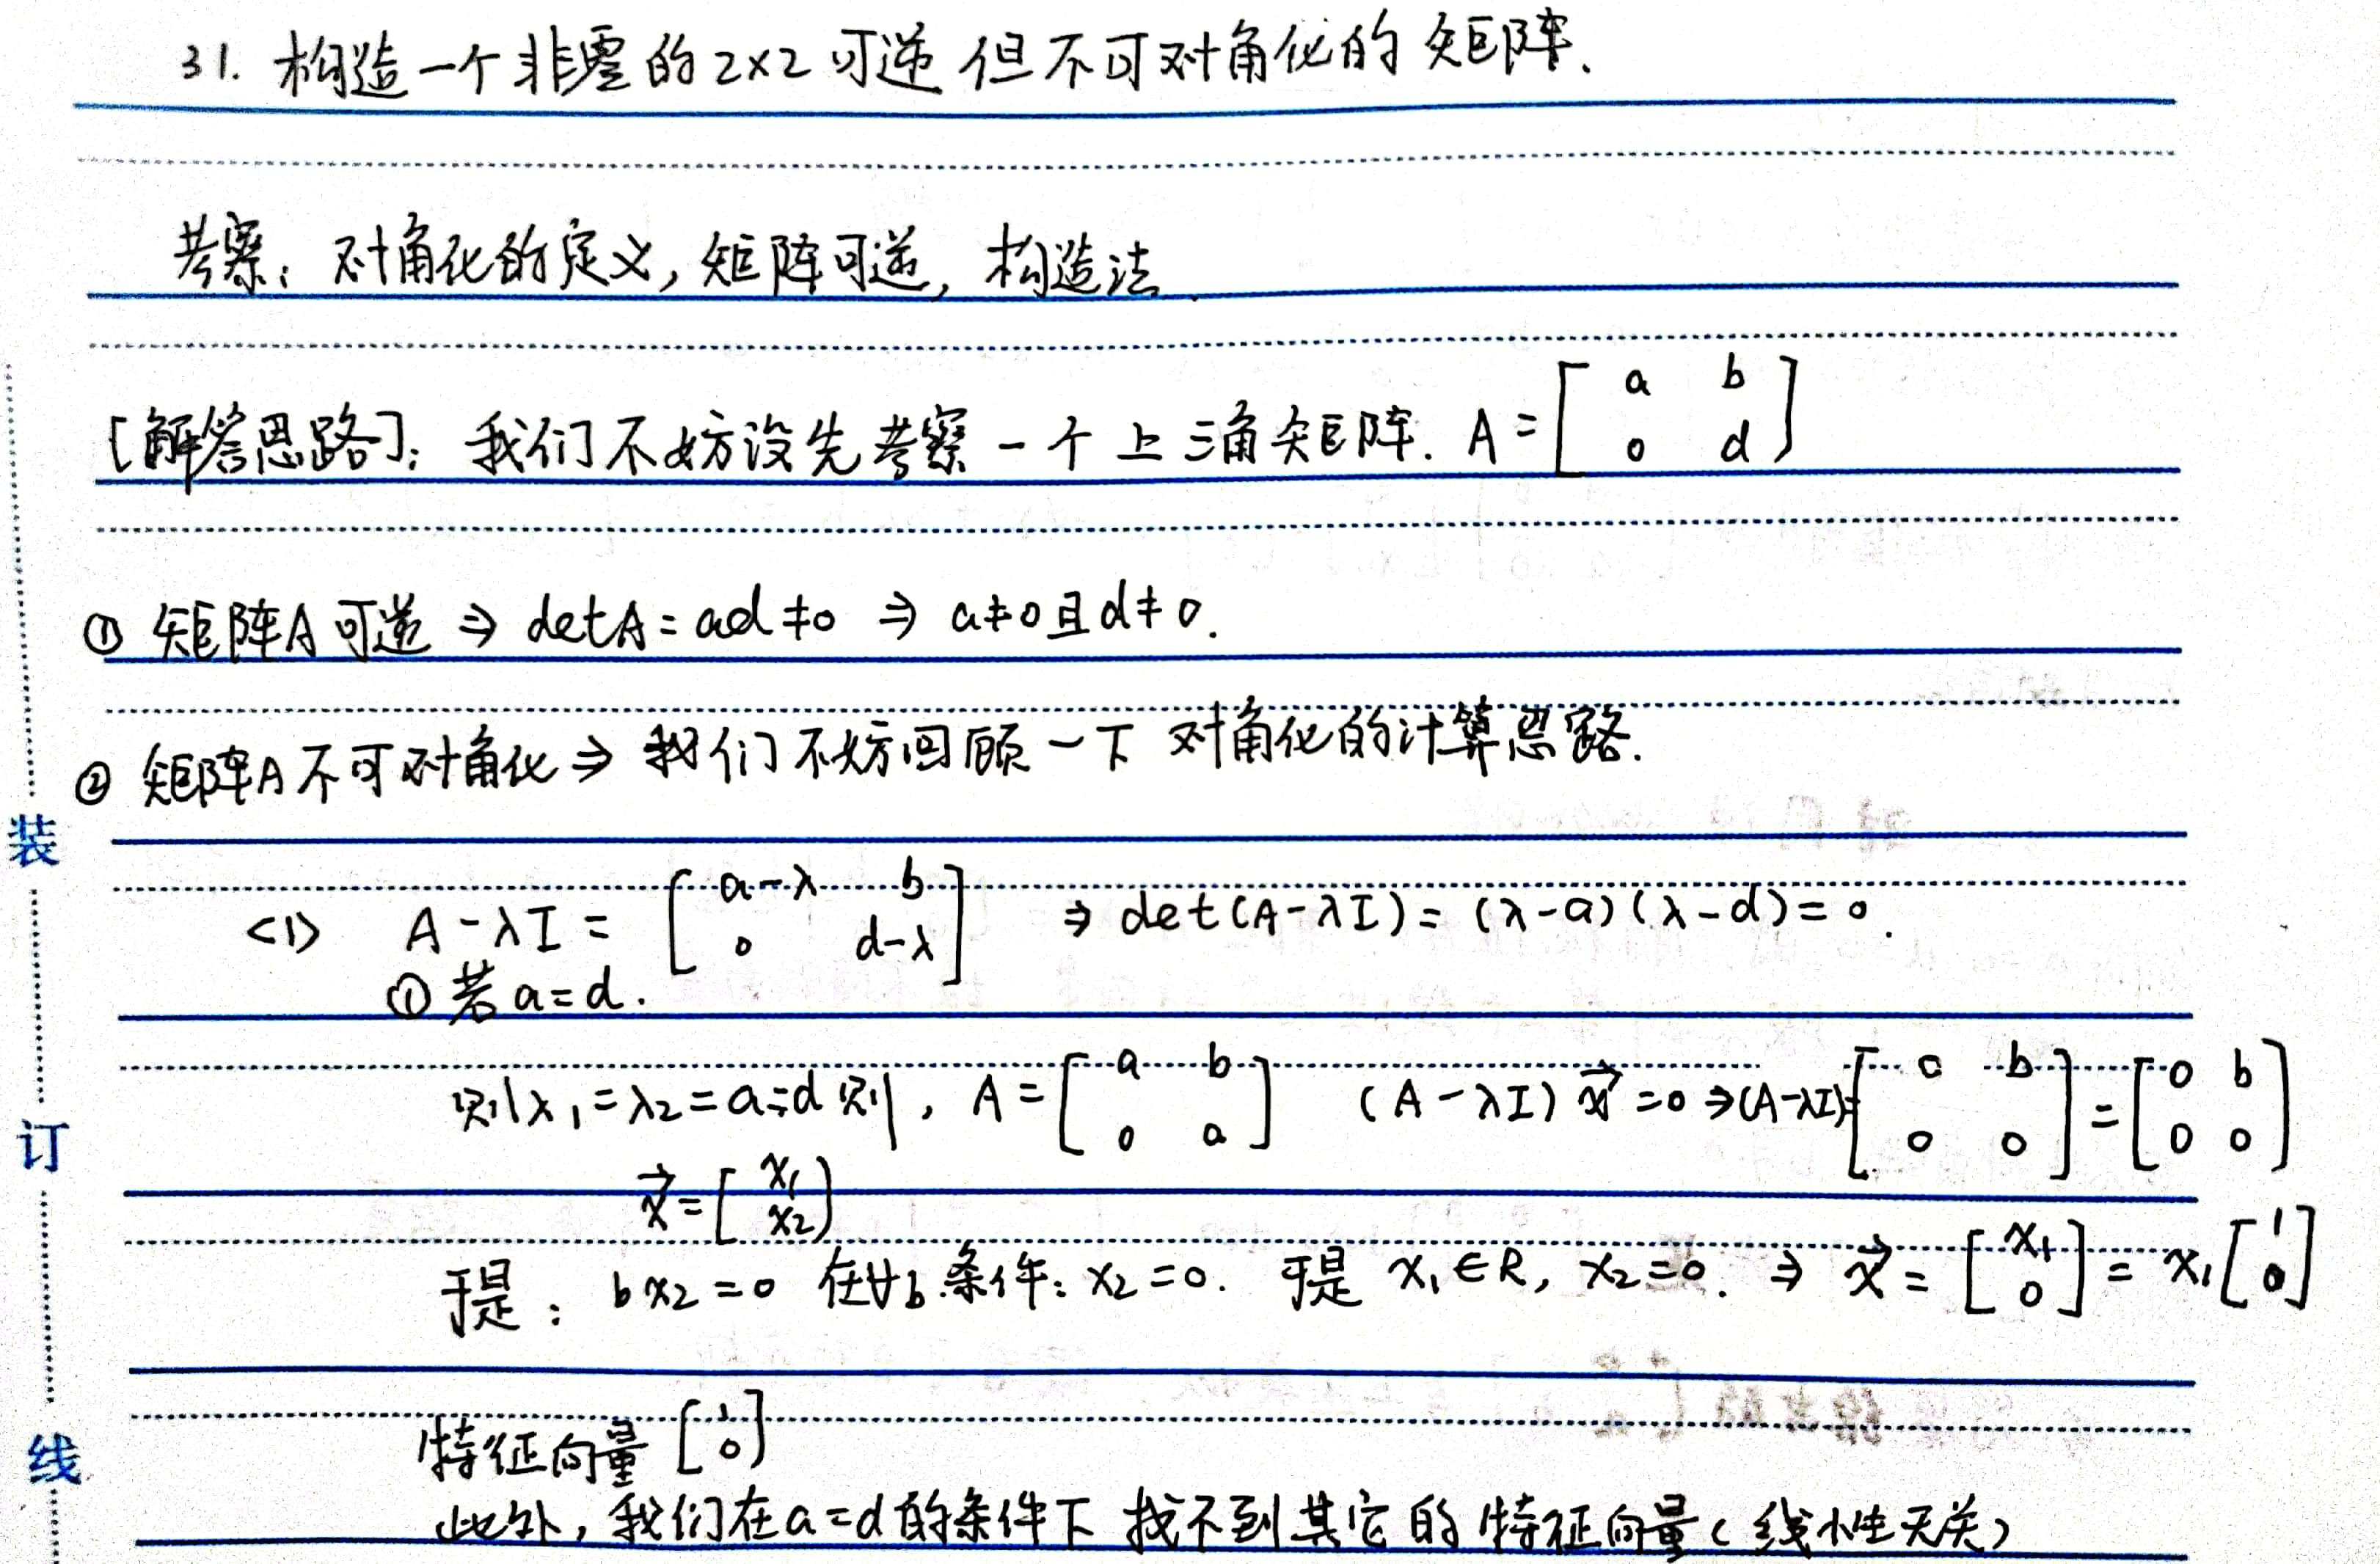 31. 构造一个非零的 2×2 可逆但不可对角化的矩阵.
考察: 对角化的定义, 矩阵可逆, 构造法.
[解答思路]: 我们不妨设先考察一个上三角矩阵. A = [ a b ; 0 d ]
① 矩阵A可逆 ⇒ detA = ad ≠ 0 ⇒ a≠0且d≠0.
② 矩阵A不可对角化 ⇒ 我们不妨回顾一下对角化的计算思路.
装
<1> A - λI = [ a-λ b ; 0 d-λ ] ⇒ det(A-λI) = (λ-a)(λ-d) = 0.
① 若 a=d.
则 λ₁ = λ₂ = a = d 则, A = [ a b ; 0 a ] (A - λI) x⃗ = 0 ⇒ (A-λI) = [ 0 b ; 0 0 ] = [ 0 b ; 0 0 ]
订
x⃗ = [ x₁ ; x₂ ]
于是: b x₂ = 0 在∀b 条件: x₂ = 0. 于是 x₁ ∈ R, x₂ = 0. ⇒ x⃗ = [ x₁ ; 0 ] = x₁ [ 1 ; 0 ]
特征向量 [ 1 ; 0 ]
线
此外, 我们在 a=d 的条件下 找不到其它的特征向量 (线性无关)